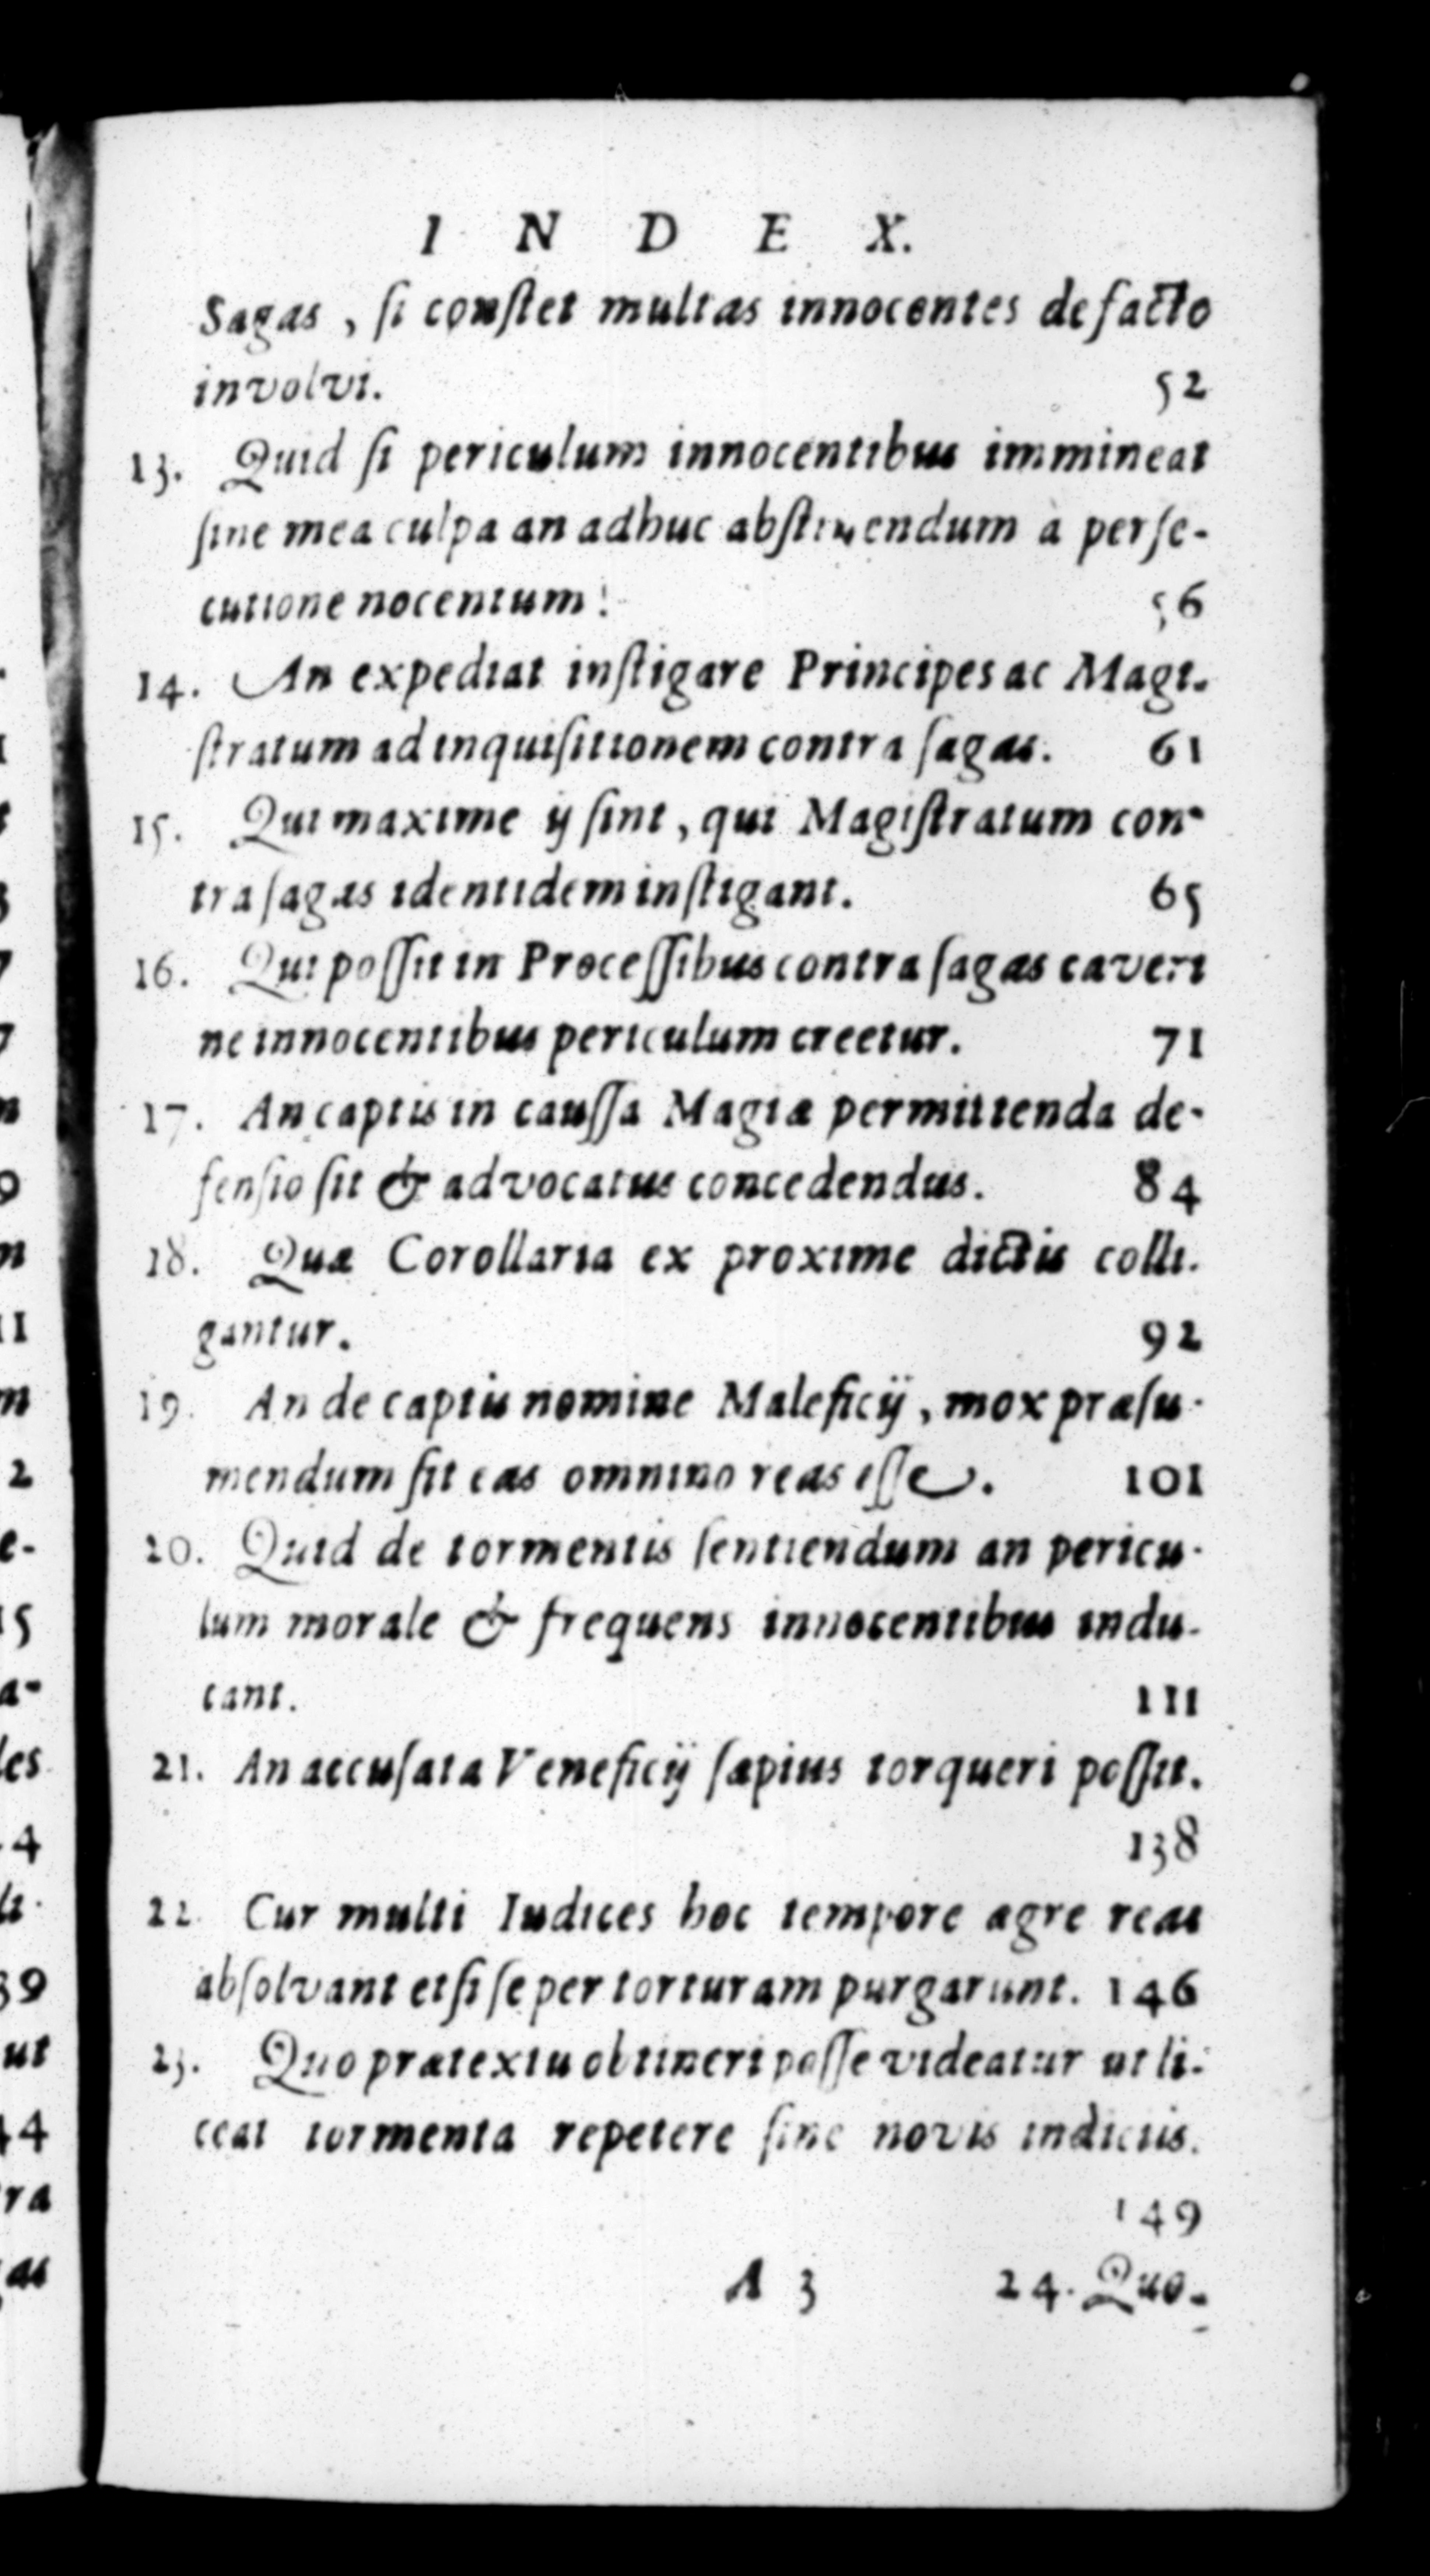 INDEX.
Sagas, ſi conſtet multas innocentes de facto
involvi. 52
13. Quid ſi periculum innocentibus immineat
ſine mea culpa an adhuc abſtinendum à perſe-
cutione nocentum? 56
14. An expediat inſtigare Principes ac Magi-
ſtratum ad inquiſitionem contra ſagas. 61
15. Qui maxime ij ſint, qui Magiſtratum con-
tra ſagas identidem inſtigant. 65
16. Qui poſſit in Proceſſibus contra ſagas caveri
ne innocentibus periculum creetur. 71
17. An captis in cauſſa Magiæ permittenda de-
fenſio ſit & advocatus concedendus. 84
18. Quæ Corollaria ex proxime dictis colli-
gantur. 92
19. An de captis nomine Maleficij, mox præſu-
mendum ſit eas omnino reas eſſe. 101
20. Quid de tormentis ſentiendum an pericu-
lum morale & frequens innocentibus indu-
cant. 111
21. An accuſata Veneficij ſæpius torqueri poſſit.
138
22. Cur multi Iudices hoc tempore ægre reas
abſolvant etſi ſe per torturam purgarunt. 146
23. Quo prætextu obtineri poſſe videatur ut li-
ceat tormenta repetere ſine novis indiciis.
149
A 3 24. Quo-